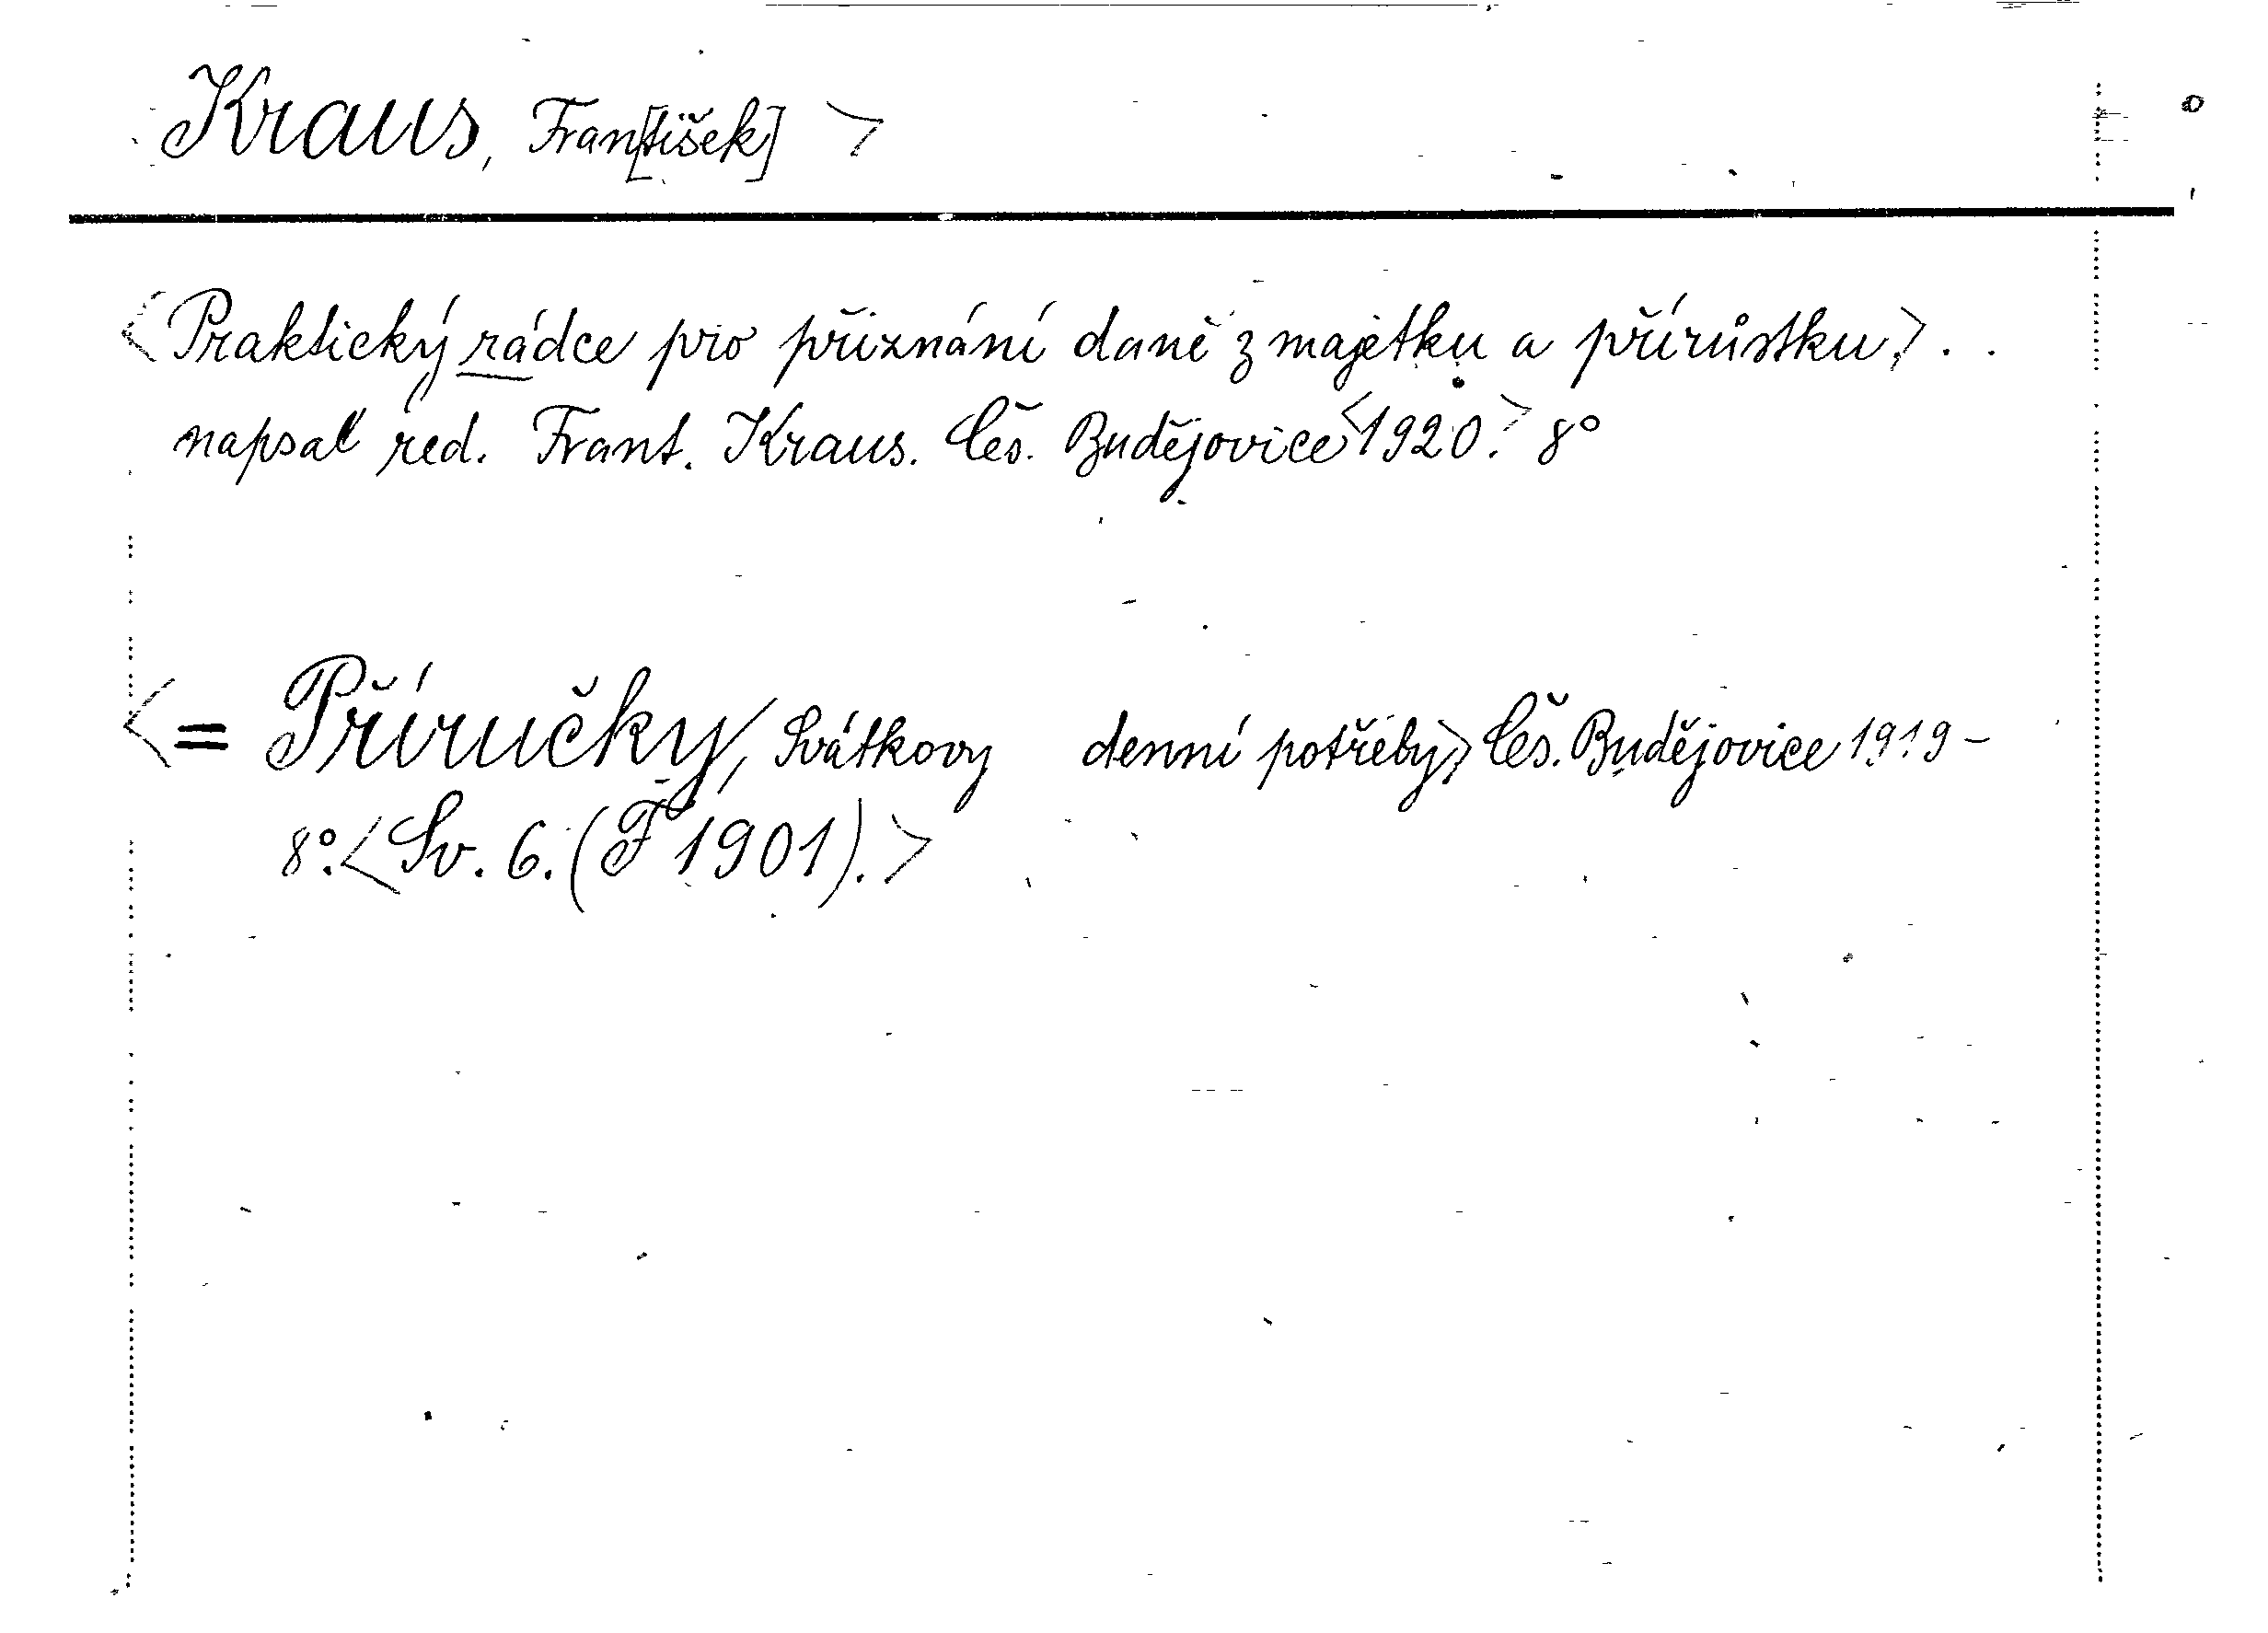 Kraus, Fran[tišek] >
<Praktický rádce pro přiznání daně z majetku a přírůstku> . .
napsal red. Frant. Kraus. Čes. Budějovice <1920.> 8°
<= Příručky, Svátkovy denní potřeby> Čes. Budějovice 1919 -
8°. <Sv. 6. (F 1901).>